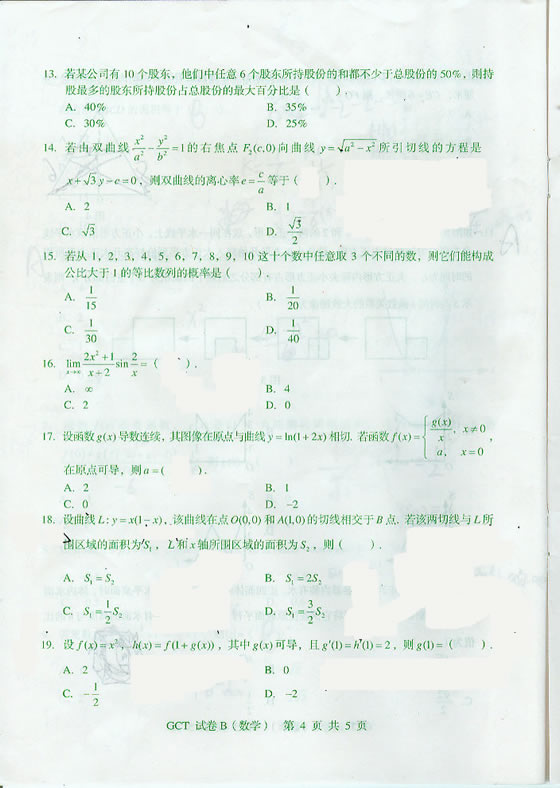 13. 若某公司有 10 个股东，他们中任意 6 个股东所持股份的和都不少于总股份的 50%，则持
股最多的股东所持股份占总股份的最大百分比是（　　）.
A. 40%　　B. 35%
C. 30%　　D. 25%
14. 若由双曲线 x²/a² − y²/b² = 1 的右焦点 F₂(c,0) 向曲线 y = √(a² − x²) 所引切线的方程是
x + √3 y − c = 0，则双曲线的离心率 e = c/a 等于（　　）.
A. 2　　B. 1
C. √3　　D. √5/2
15. 若从 1，2，3，4，5，6，7，8，9，10 这十个数中任意取 3 个不同的数，则它们能构成
公比大于 1 的等比数列的概率是（　　）.
A. 1/15　　B. 1/20
C. 1/30　　D. 1/40
16. lim x→∞ (2x² + 1)/(x + 2) sin 2/x =（　　）.
A. ∞　　B. 4
C. 2　　D. 0
17. 设函数 g(x) 导数连续，其图像在原点与曲线 y = ln(1 + 2x) 相切. 若函数 f(x) = { g(x)/x, x ≠ 0; a, x = 0 ，
在原点可导，则 a =（　　）.
A. 2　　B. 1
C. 0　　D. −2
18. 设曲线 L: y = x(1 − x)，该曲线在点 O(0,0) 和 A(1,0) 的切线相交于 B 点. 若该两切线与 L 所
围区域的面积为 S₁，L 和 x 轴所围区域的面积为 S₂，则（　　）.
A. S₁ = S₂　　B. S₁ = 2S₂
C. S₁ = 1/2 S₂　　D. S₁ = 3/2 S₂
19. 设 f(x) = x²，h(x) = f(1 + g(x))，其中 g(x) 可导，且 g′(1) = h′(1) = 2，则 g(1) =（　　）.
A. 2　　B. 0
C. −1/2　　D. −2
GCT 试卷B（数学）　第 4 页 共 5 页